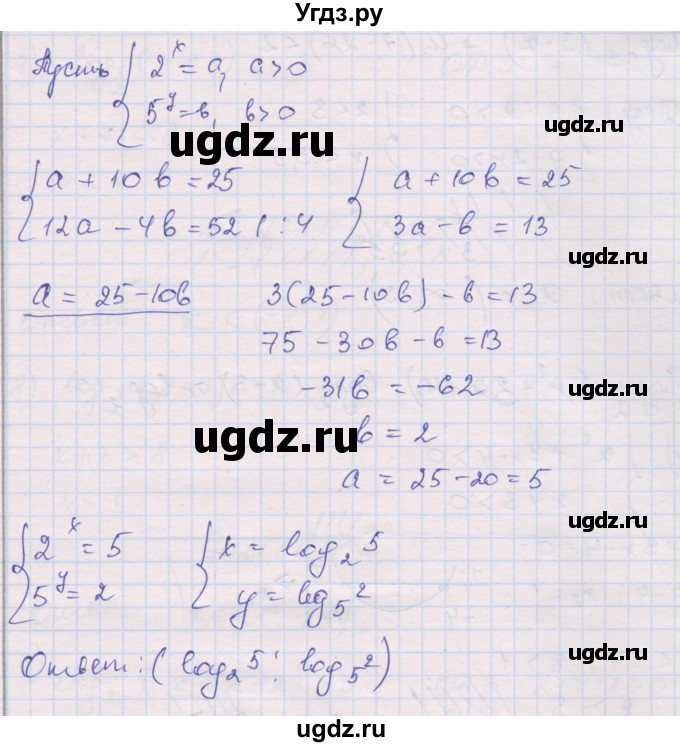 Угдз.ру
Пусть { 2^x = a, a > 0
5^y = b, b > 0
ugdz.ru
ugdz.ru
{ a + 10b = 25 { a + 10b = 25
12a - 4b = 52 | : 4 3a - b = 13
ugdz.ru
a = 25 - 10b 3(25 - 10b) - b = 13
75 - 30b - b = 13
-31b = -62
ugdz.ru
ugdz.ru
b = 2
a = 25 - 20 = 5
ugdz.ru
{ 2^x = 5 { x = log₂ 5
5^y = 2 y = log₅ 2
Ответ: (log₂ 5; log₅ 2)
ugdz.ru
ugdz.ru